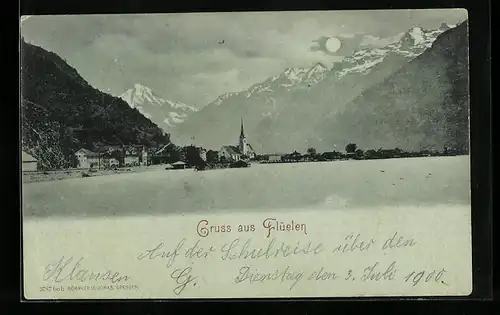 Gruss aus Flüelen
Auf der Schulreise über den
Klausen
Dienstag den 3. Juli 1900.